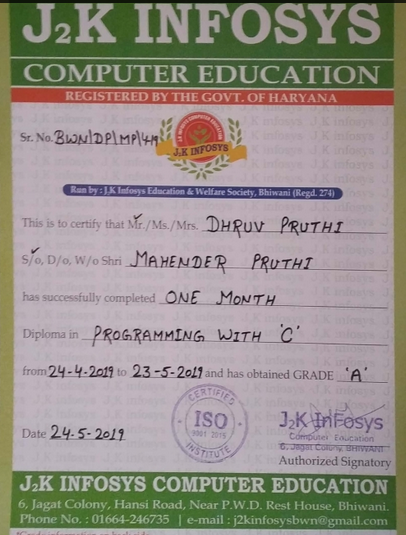 J2K INFOSYS
COMPUTER EDUCATION
REGISTERED BY THE GOVT. OF HARYANA
Sr. No. BWN|DP|MP|419
J2K INFOSYS
Run by : J.K Infosys Education & Welfare Society, Bhiwani (Regd. 274)
This is to certify that Mr./Ms./Mrs. DHRUV PRUTHI
S/o, D/o, W/o Shri MAHENDER PRUTHI
has successfully completed ONE MONTH
Diploma in PROGRAMMING WITH 'C'
from 24-4-2019 to 23-5-2019 and has obtained GRADE 'A'
CERTIFIED
ISO
INSTITUTE
Date 24.5-2019
J2K InFosys
Computer Education
6, Jagat Colony, BHIWANI
Authorized Signatory
J2K INFOSYS COMPUTER EDUCATION
6, Jagat Colony, Hansi Road, Near P.W.D. Rest House, Bhiwani.
Phone No. : 01664-246735 | e-mail : j2kinfosysbwn@gmail.com